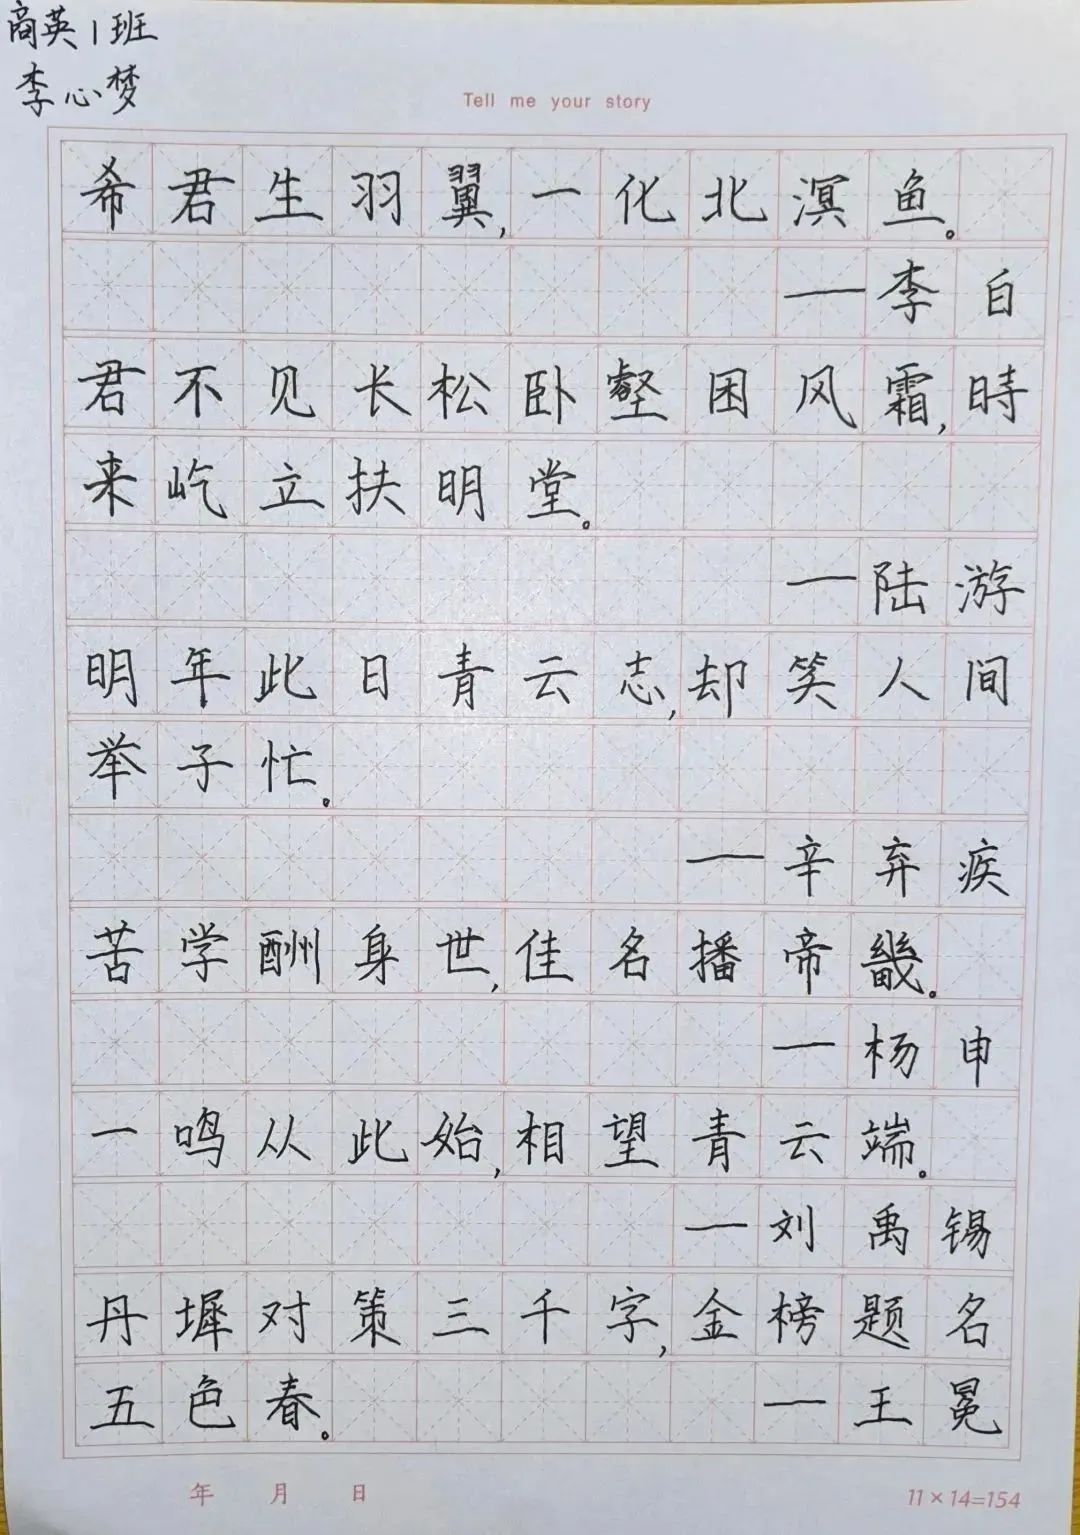 商英1班
李心梦
Tell me your story
希君生羽翼,一化北溟鱼。
——李白
君不见长松卧壑困风霜,時
来屹立扶明堂。
——陆游
明年此日青云志,却笑人间
举子忙。
——辛弃疾
苦学酬身世,佳名播帝畿。
——杨申
一鸣从此始,相望青云端。
——刘禹锡
丹墀对策三千字,金榜题名
五色春。 ——王冕
年 月 日
11×14=154